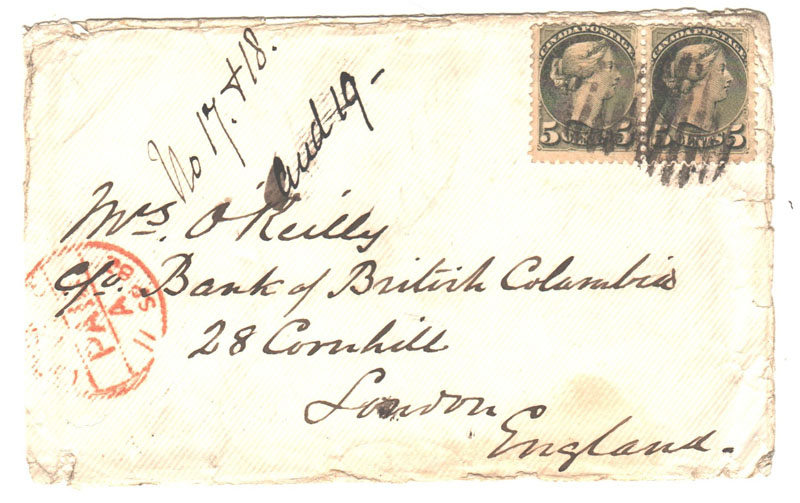 CANADA POSTAGE CANADA POSTAGE
5 CENTS 5 5 CENTS 5
No 17. & 18.
and 19 -
Mrs. O'Reilly
c/o. Bank of British Columbia
28 Cornhill
London
England.
PAID
11 SE 82
A